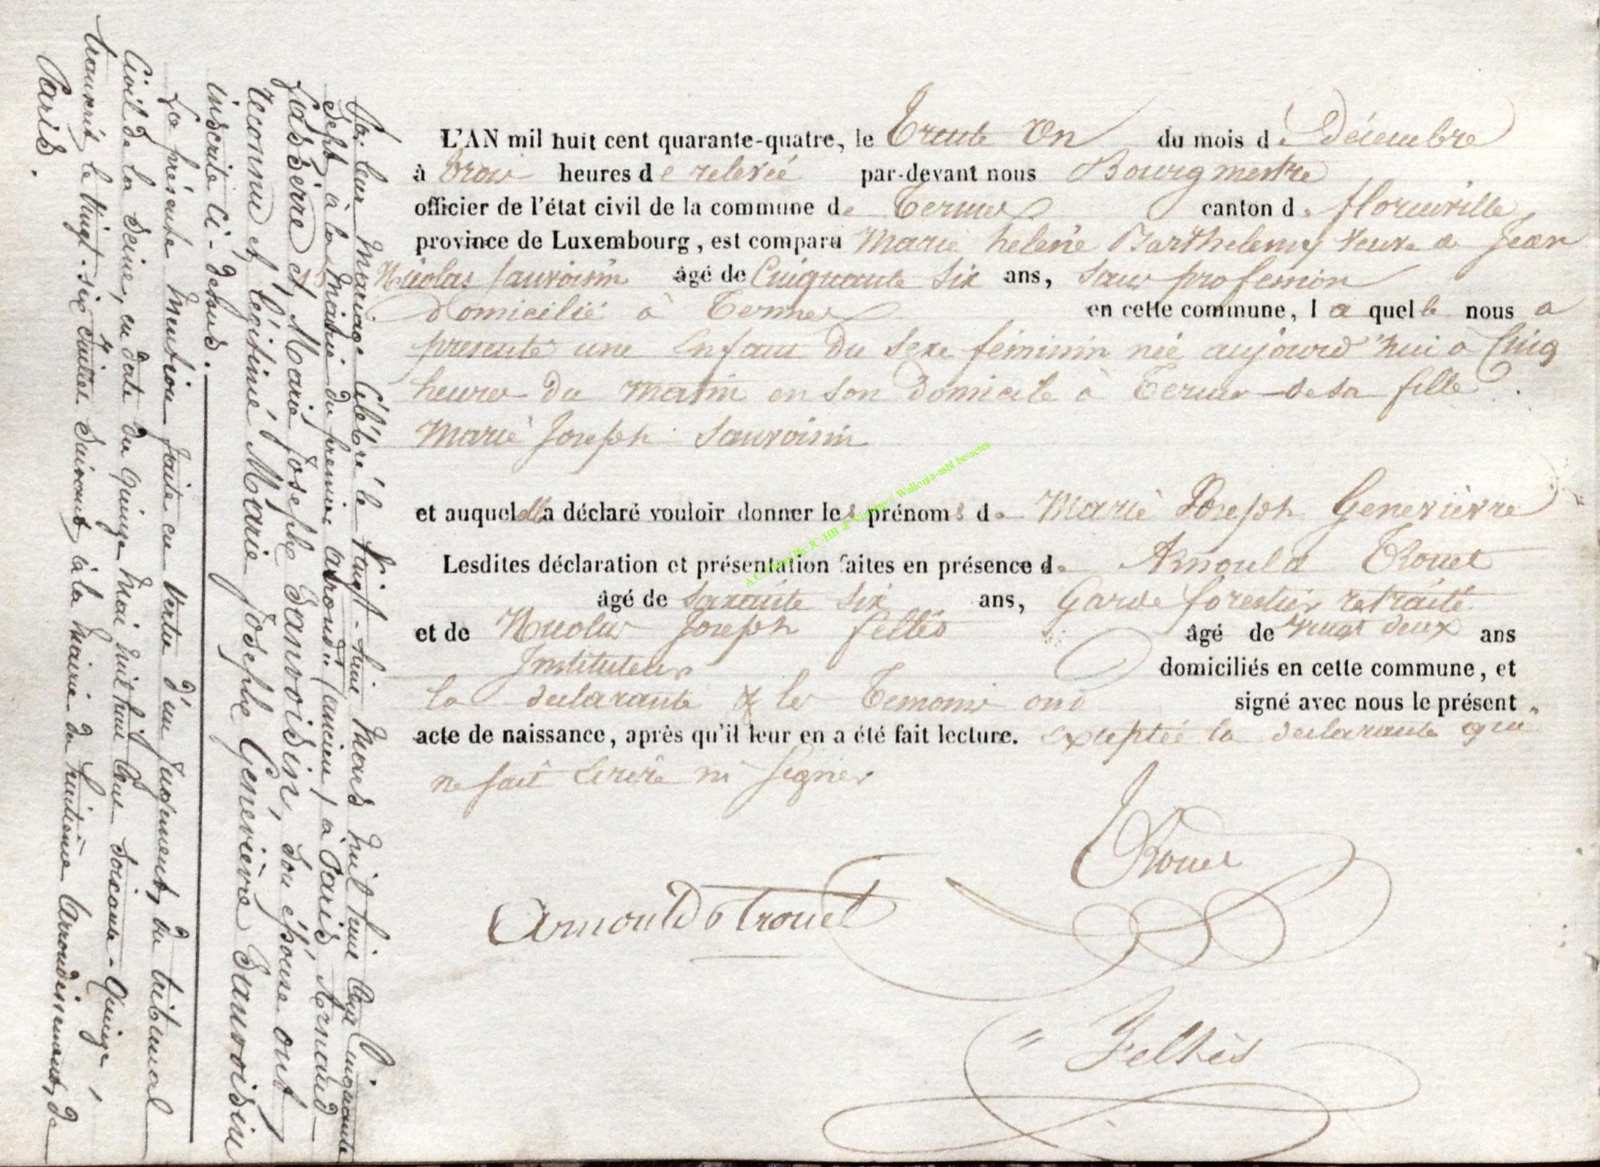 L'AN mil huit cent quarante-quatre, le Trente Un du mois de décembre
à trois heures de relevée par-devant nous Bourgmestre
officier de l'état civil de la commune de Termes canton de florenville
province de Luxembourg, est comparu Marie helene Barthelemy veuve de Jean
Nicolas Sauvoisin âgé de Cinquante six ans, sans profession
Domicilié à Termes en cette commune, laquelle nous a
presenté une Enfant du sexe féminin née aujourd'hui a Cinq
heures du matin en son Domicile à Termes de sa fille
Marie Joseph Sauvoisin
et auquel elle a déclaré vouloir donner les prénoms de Marie Joseph Genevievre
Lesdites déclaration et présentation faites en présence de Arnould Trouet
âgé de Soixante six ans, Garde forestier retraité
et de Nicolas Joseph felles âgé de vingt deux ans
Instituteur domiciliés en cette commune, et
la declarante & les Temoins ont signé avec nous le présent
acte de naissance, après qu'il leur en a été fait lecture. exceptée la declarante qui
ne sait Ecrire ni signer
Trouet
Arnould Trouet
Felles
Par leur mariage célébré le vingt-huit mars mil huit cent cinquante
sept à la mairie du premier arrondt (ancien) à Paris, Renard
et Marie Josephe Sauvoisin, son épouse ont
reconnu et légitimé Marie Josephe Geneviève Sauvoisin
inscrite ci-dessus.
La présente mention faite en vertu d'un jugement du tribunal
Civil de la Seine, en date du quinze mai mil huit cent soixante-quinze,
transcrit le vingt-six juillet suivant à la mairie du huitième arrondissement de
Paris.